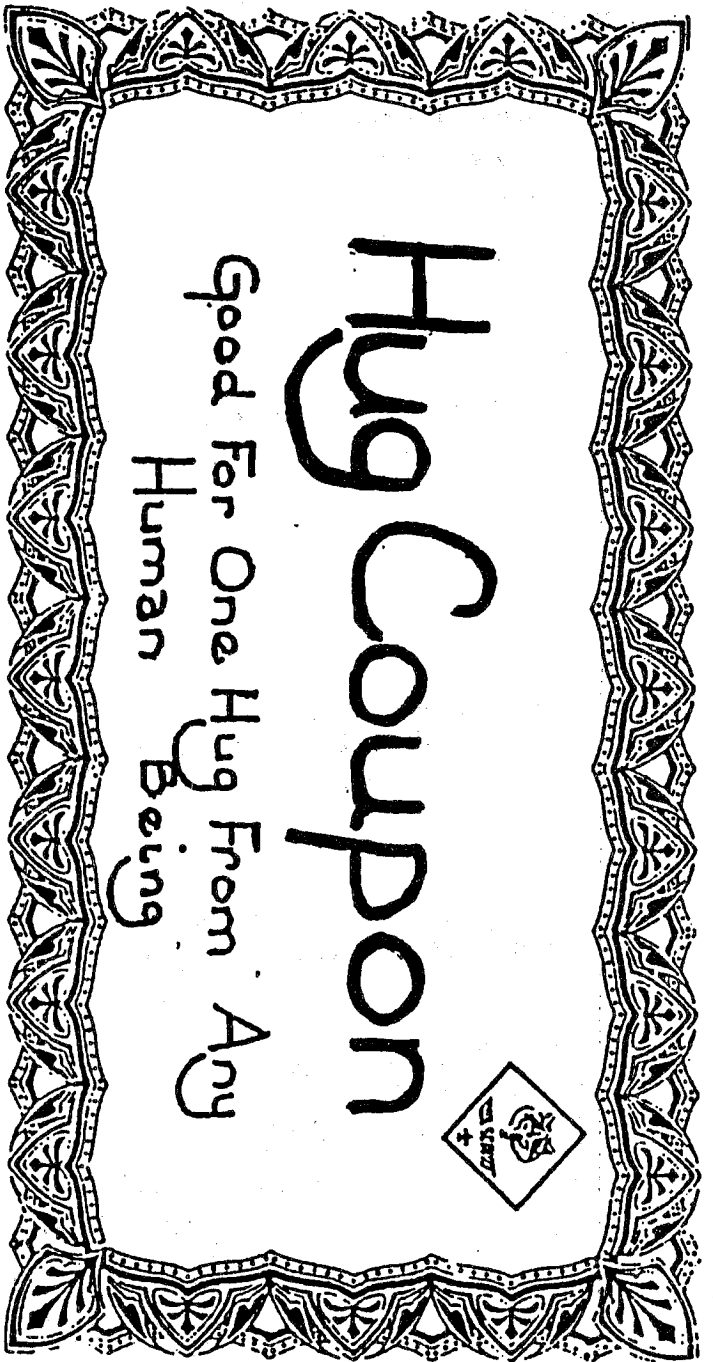 Hug Coupon
Good For One Hug From Any
Human Being